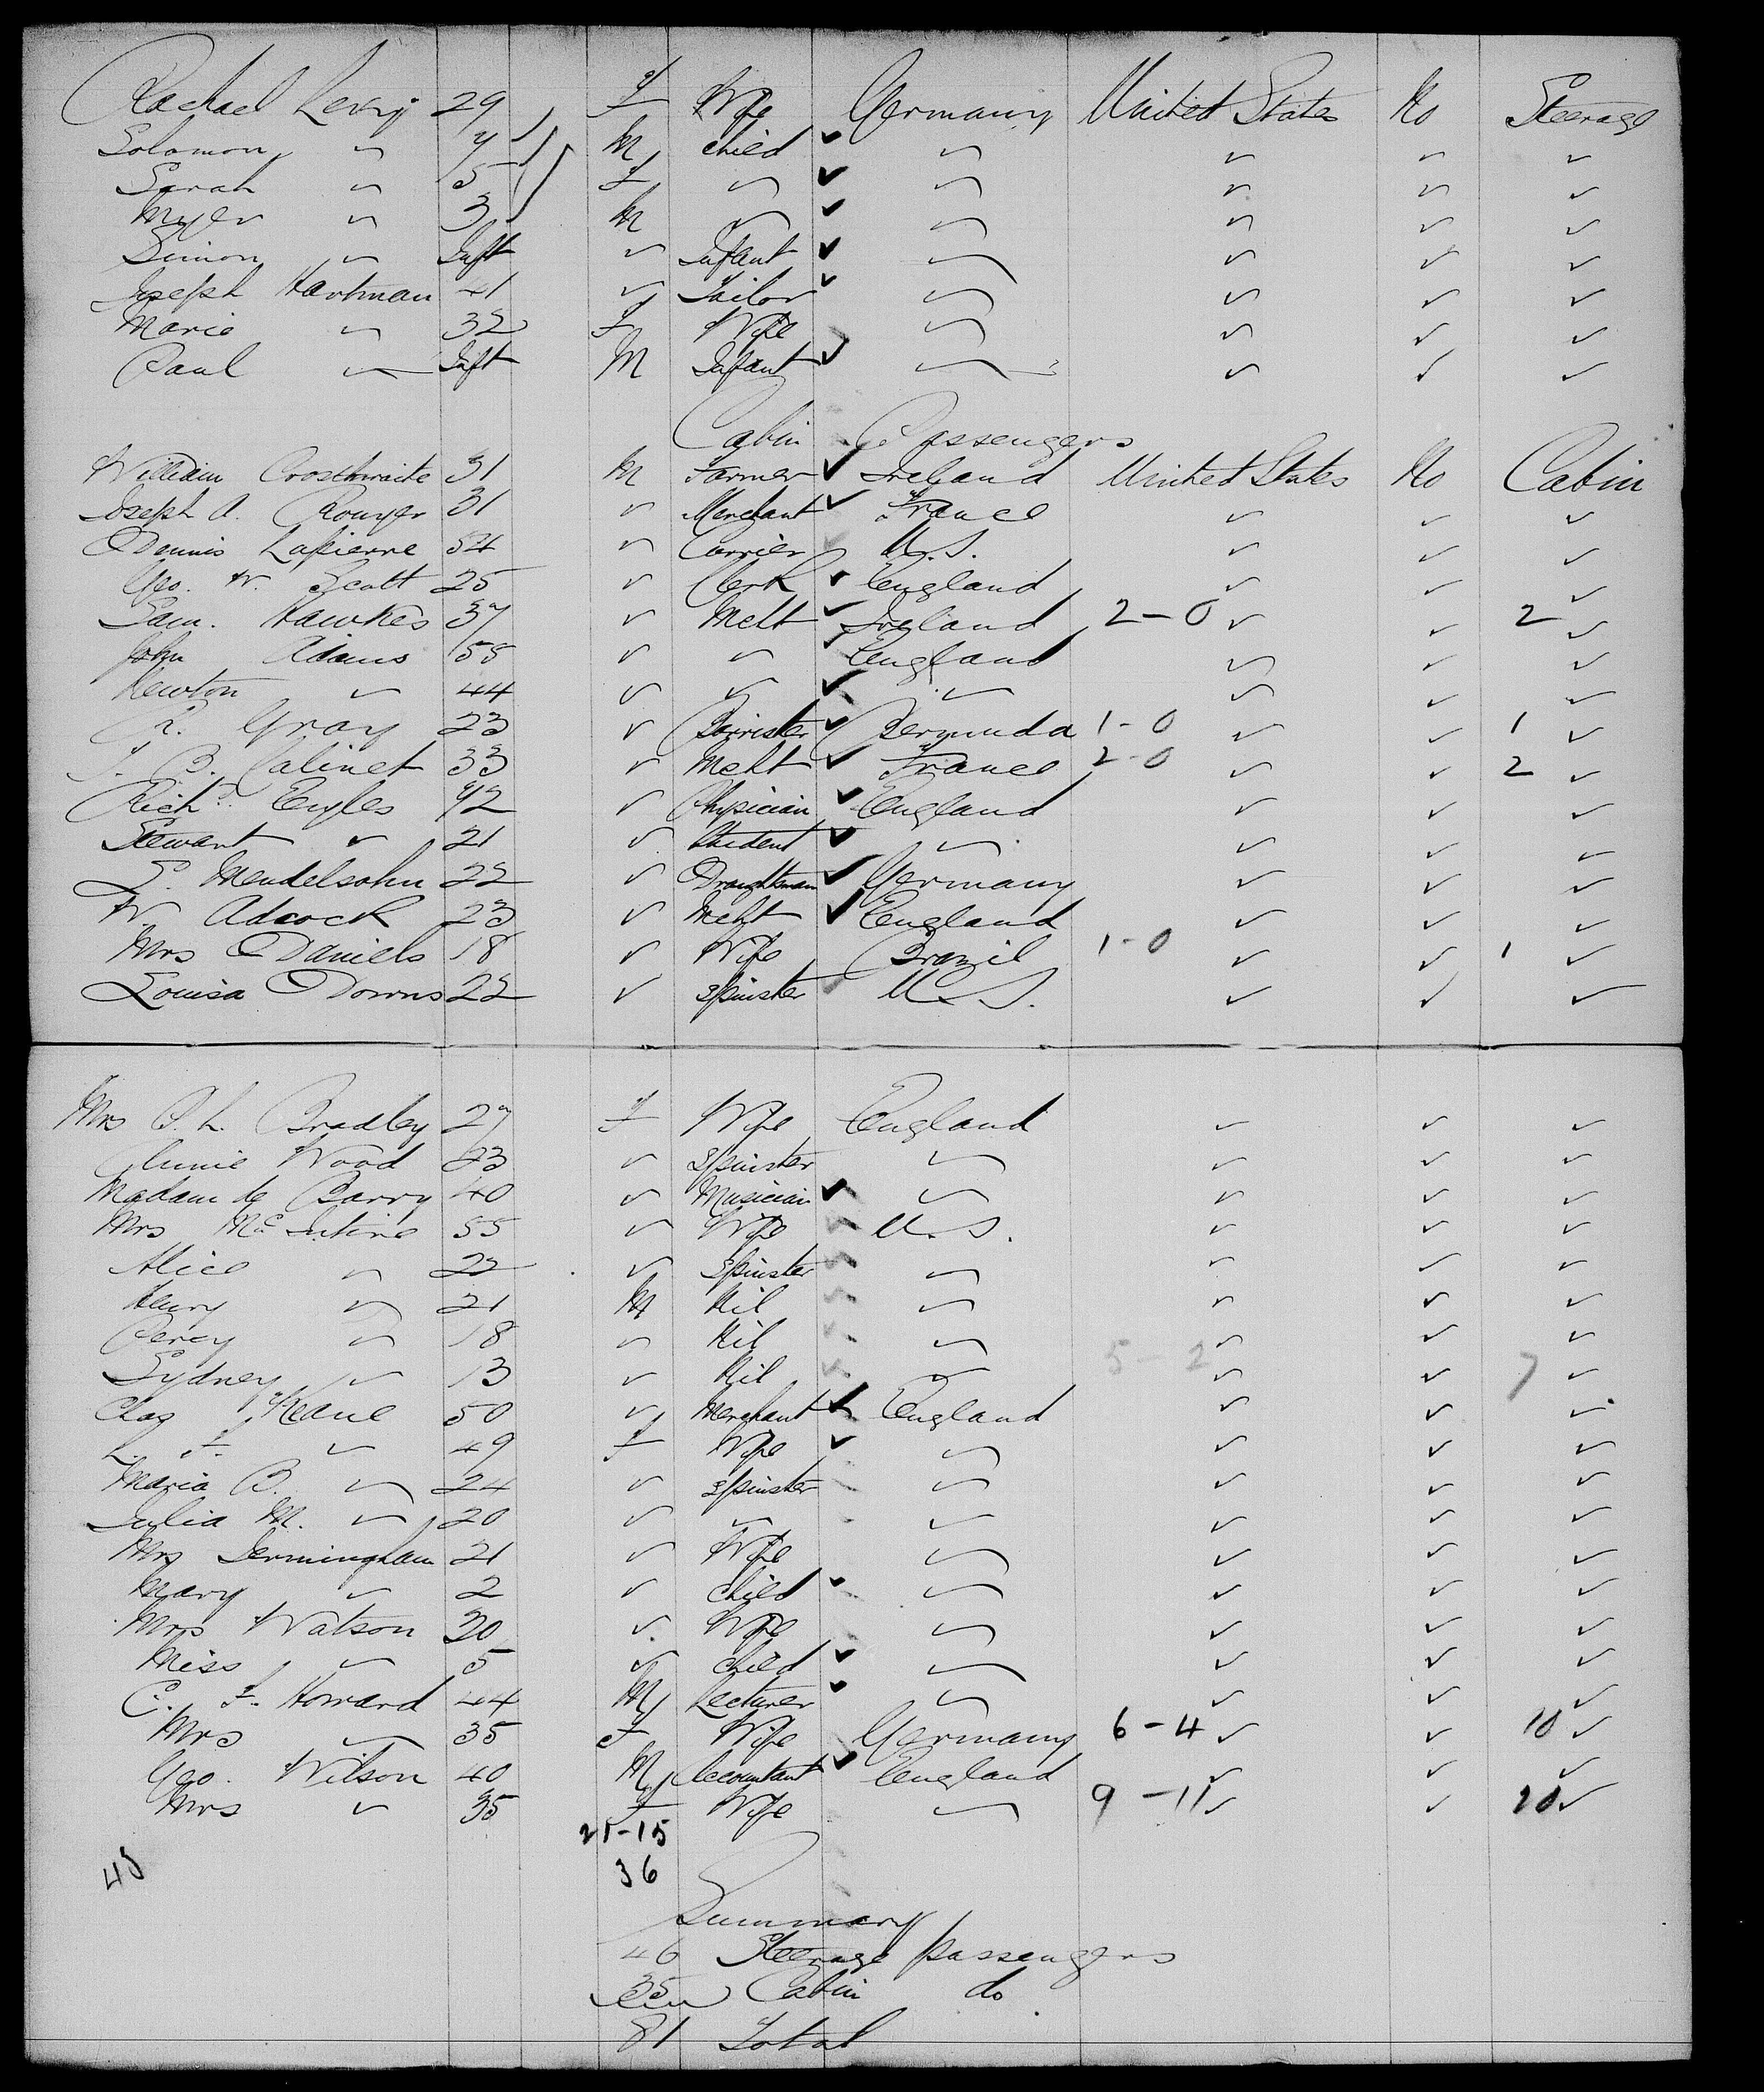 Rachael Levy 29 F Wife Germany United States No Steerage
Solomon " 7 M Child ✓ " " " "
Sarah " 5 F " ✓ " " " "
Myer " 3 M " ✓ " " " "
Simon " Inft " Infant ✓ " " " "
Joseph Hartman 41 " Tailor ✓ " " " "
Marie " 32 F Wife " " " "
Paul " Inft M Infant ✓ " " " "
Cabin Passengers
William Crosthwaite 31 M Farmer ✓ Ireland United States No Cabin
Joseph A. Rouyer 31 " Merchant ✓ France " " "
Dennis Lapierre 54 " Currier U.S. " " "
Geo. W. Scott 25 " Clerk ✓ England " " "
Sam. Hawkes 37 " Mcht ✓ Ireland 2-0 " " 2 "
John Adams 55 " " ✓ England " " "
Newton " 44 " " ✓ " " " "
R. Gray 23 " Barrister ✓ Bermuda 1-0 " " 1 "
J. B. Calinet 33 " Mcht ✓ France 2-0 " " 2 "
Richd. Eyles 42 " Physician ✓ England " " "
Stewart " 21 " Student ✓ " " " "
S. Mendelsohn 22 " Draughtsman ✓ Germany " " "
W. Adcock 23 " Mcht ✓ England " " "
Mrs Daniels 18 " Wife Brazil 1-0 " " 1 "
Louisa Downs 22 " Spinster U.S. " " "
Mrs B. L. Bradley 27 F Wife England " " "
Annie Wood 23 " Spinster " " " "
Madam de Barry 40 " Musician ✓ " " " "
Mrs McIntire 55 " Wife U.S. " " "
Alice " 22 " Spinster " " " "
Henry " 21 M Nil " " " "
Percy " 18 " Nil " " " "
Sydney " 13 " Nil " 5-2 " " 7 "
Chas Keane 50 " Merchant ✓ England " " "
L. F. " 49 F Wife ✓ " " " "
Maria B. " 24 " Spinster " " " "
Julia M. " 20 " " " " " "
Mrs Dermingham 21 " Wife " " " "
Mary " 2 " Child ✓ " " " "
Mrs Watson 20 " Wife " " " "
Miss " 5 " Child ✓ " " " "
C. F. Howard 44 M Lecturer ✓ " " " "
Mrs " 35 F Wife Germany 6-4 " " 10 "
Geo. Wilson 40 M Accountant ✓ England " " "
Mrs " 35 F Wife " 9-11 " " 20 "
21-15
45 36
Summary
46 Steerage passengers
35 Cabin do
81 Total